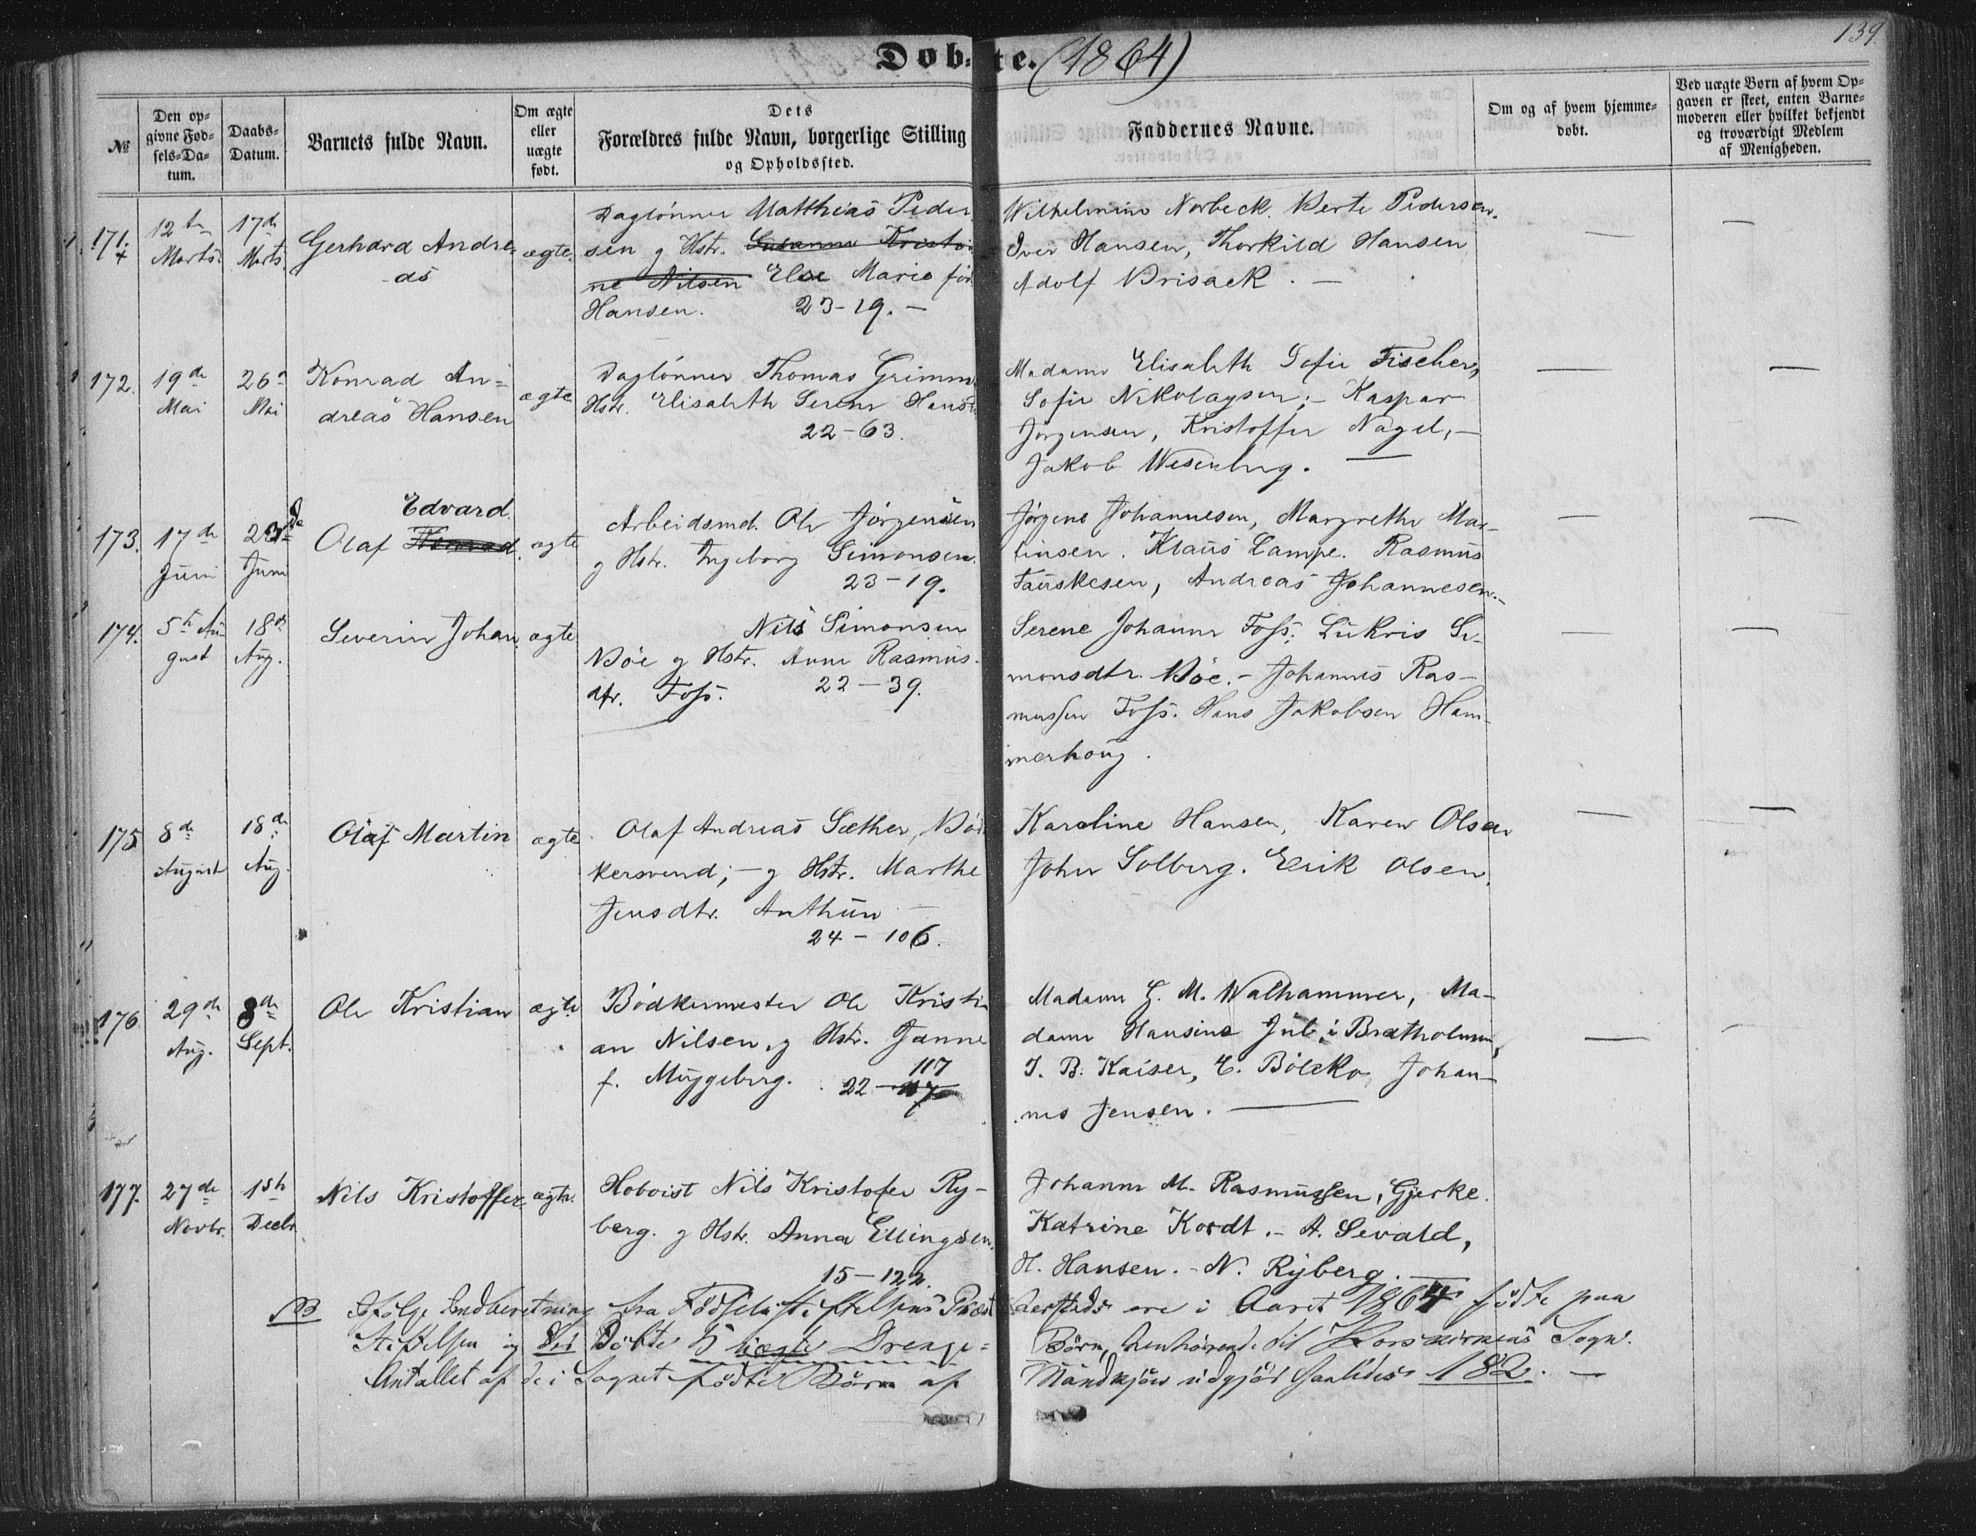 139.
Døbte. (1864)
№
Den op-
givne Fød-
sels-Da-
tum.
Daabs-
Datum.
Barnets fulde Navn.
Om ægte
eller
uægte
født.
Dets
Forældres fulde Navn, borgerlige Stilling
og Opholdssted.
Faddernes Navne.
Om og af hvem hjemme-
døbt.
Ved uægte Børn af hvem Op-
gaven er skeet, enten Barne-
moderen eller hvilket bekjendt
og troværdigt Medlem
af Menigheden.
171.
12te
Marts
17de
Marts
Gerhard Andre-
as
ægte.
Daglønner Matthias Peder
sen og Hstr. Susanna Kristi
ne Nilsen Else Marie fød
Hansen. 23-19. —
Wilhelmine Norbeck. Berte Pedersen.
Iver Hansen, Thorkild Hansen
Adolf Brisack. —
172.
19de
Mai
26
Mai
Konrad An-
dreas Hansen
ægte
Daglønner Thomas Grimm
Hstr. Elisabeth Serene Hans
22-63.
Madame Elisabeth Sofie Fischer,
Sofie Nikolaysen; - Kaspar
Jørgensen, Kristoffer Nagel, —
Jakob Wesenberg. —
173.
17de
Juni
23de
Juni
Edvard.
Olaf Konrad.
ægte
Arbeidsmd. Ole Jørgensen
og Hstr. Ingeborg Simonsen.
23-19.
Jørgene Johannesen, Margrethe Mar-
tinsen. Klaus Lampe. Rasmus
Fauskesen, Andreas Johannesen. -
174.
5te Au
gust
18de
Aug.
Severin Johan.
ægte
Nils Simonsen
Bøe og Hstr. Anne Rasmus-
dtr. Foss. 22-39.
Serene Johanne Foss. Lukris Si-
monsdtr. Bøe. - Johannes Ras-
mussen Foss. Hans Jakobsen Ham-
merhoug.
175
8de
August
18de
Aug.
Olaf Martin
ægte
Olaf Andreas Sæther, Bød
kersvend; - og Hstr. Marthe
Jensdtr. Anthun —
24-106.
Karoline Hansen, Karen Olsen
John Solberg. Erik Olsen.
176.
29de
Aug.
8de
Sept.
Ole Kristian
ægte.
Bødkermester Ole Kristi-
an Nilsen og Hstr. Janne
f. Müggeberg. 22-117
Madame G. M. Walhammer, Ma-
dame Hansine Juli Bratholmen,
J. B. Kaiser, C. Bölcko, Johan-
nes Jensen. —
177.
27de
Novbr.
1ste
Decbr.
Nils Kristoffer
ægte.
Hoboist Nils Kristofer Ry-
berg. og Hstr. Anna Ellingsen.
15-122.
Johanne M. Rasmussen, Gjerke.
Katrine Kordt. - A. Sevald,
H. Hansen. - N. Ryberg. —
NB Ifølge Indberetning fra Fødselsstiftelsens Præst ere i Aaret 1864 fødte paa
Stiftelsen og døbte 5 uægte Drenge-Børn, henhørende til Korskirkens Sogn.
Antallet af de i Sognet fødte Børn af Mandkjøn udgjør saaledes 182. —